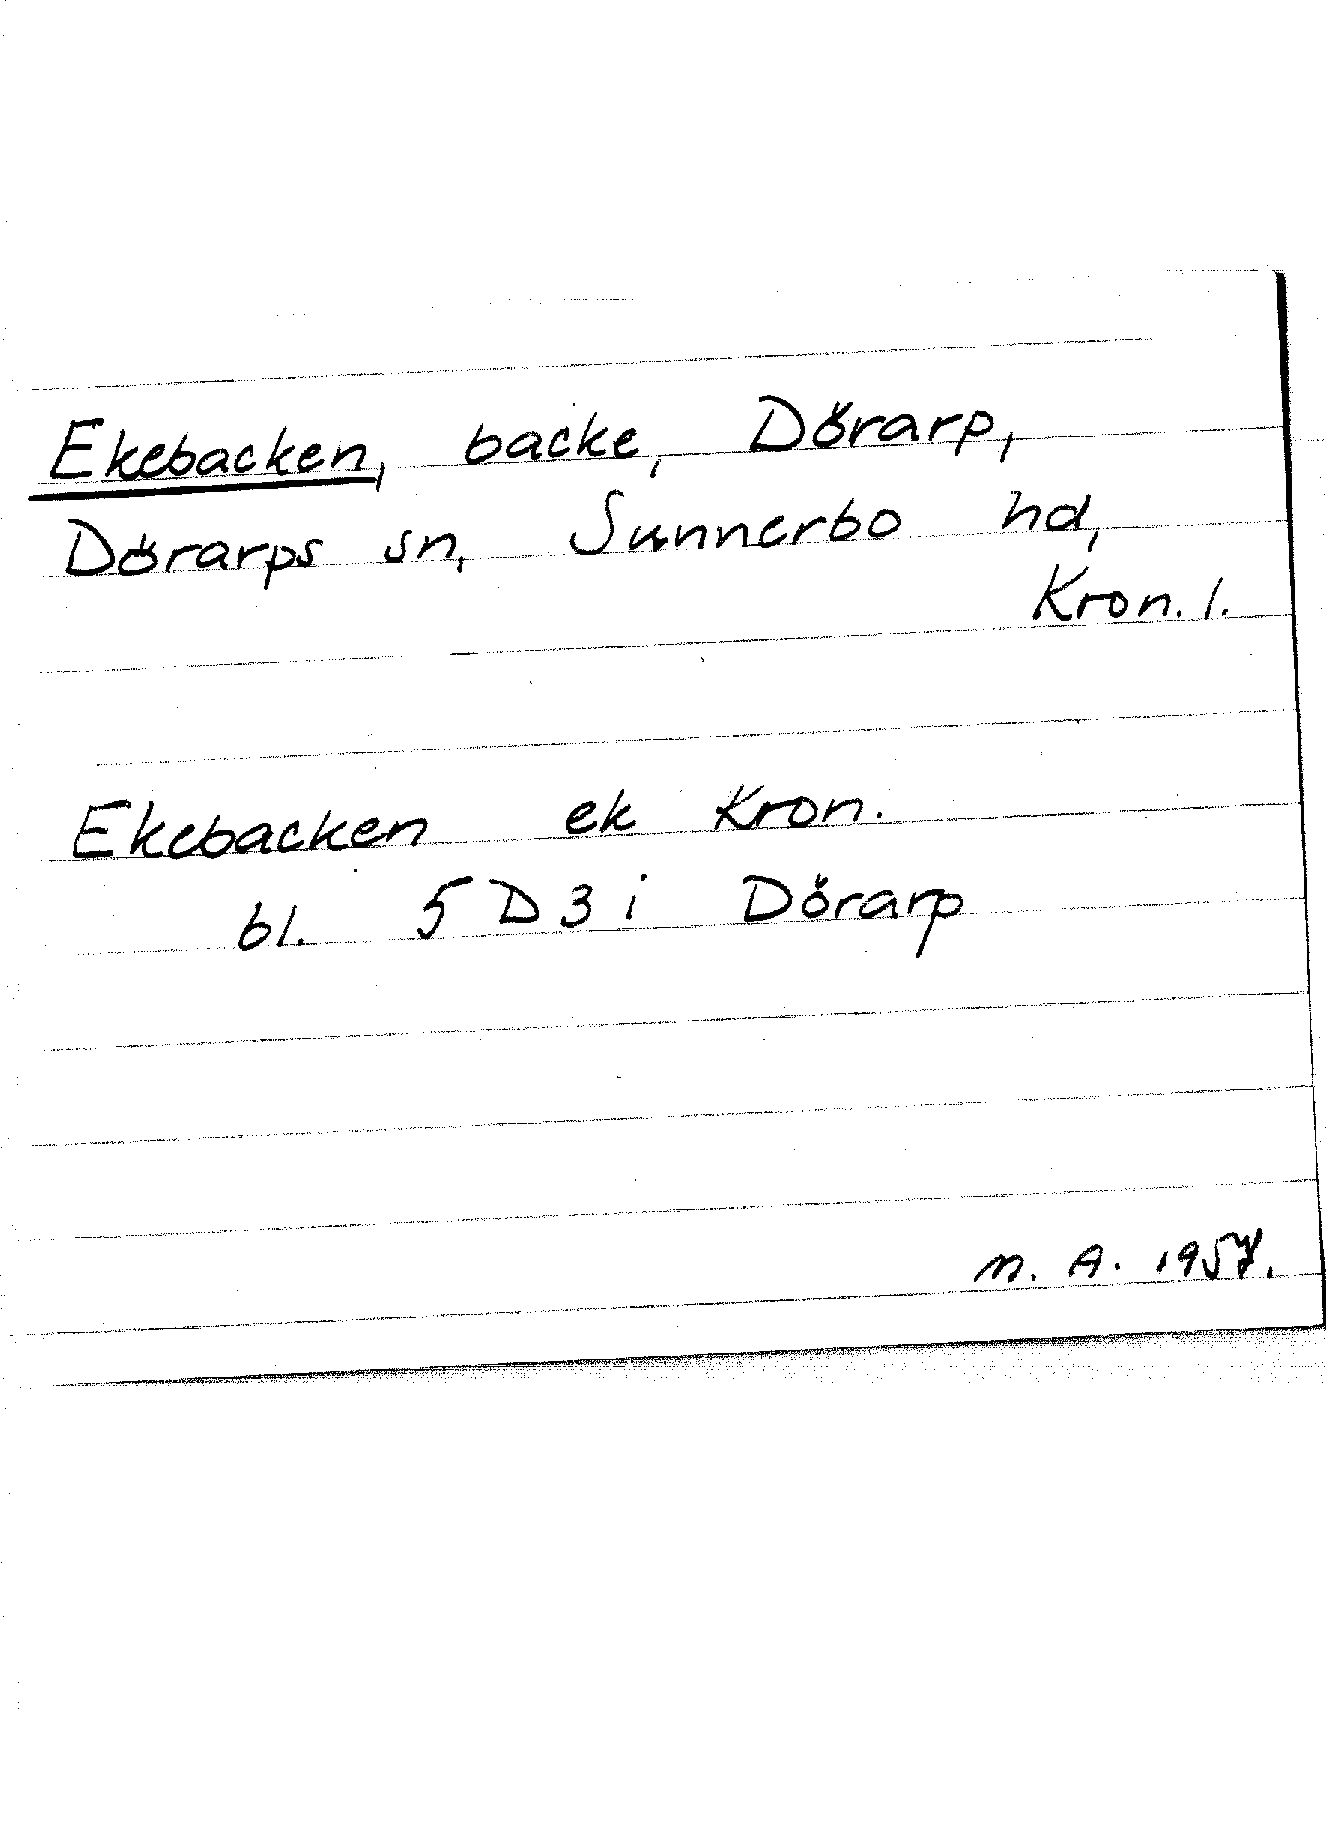 Ekebacken, backe, Dörarp,
Dörarps sn, Sunnerbo hd,
Kron. l.
Ekebacken ek Kron.
bl. 5 D 3 i Dörarp
M. A. 1957.